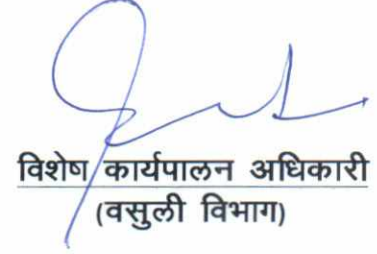 विशेष कार्यपालन अधिकारी
(वसुली विभाग)